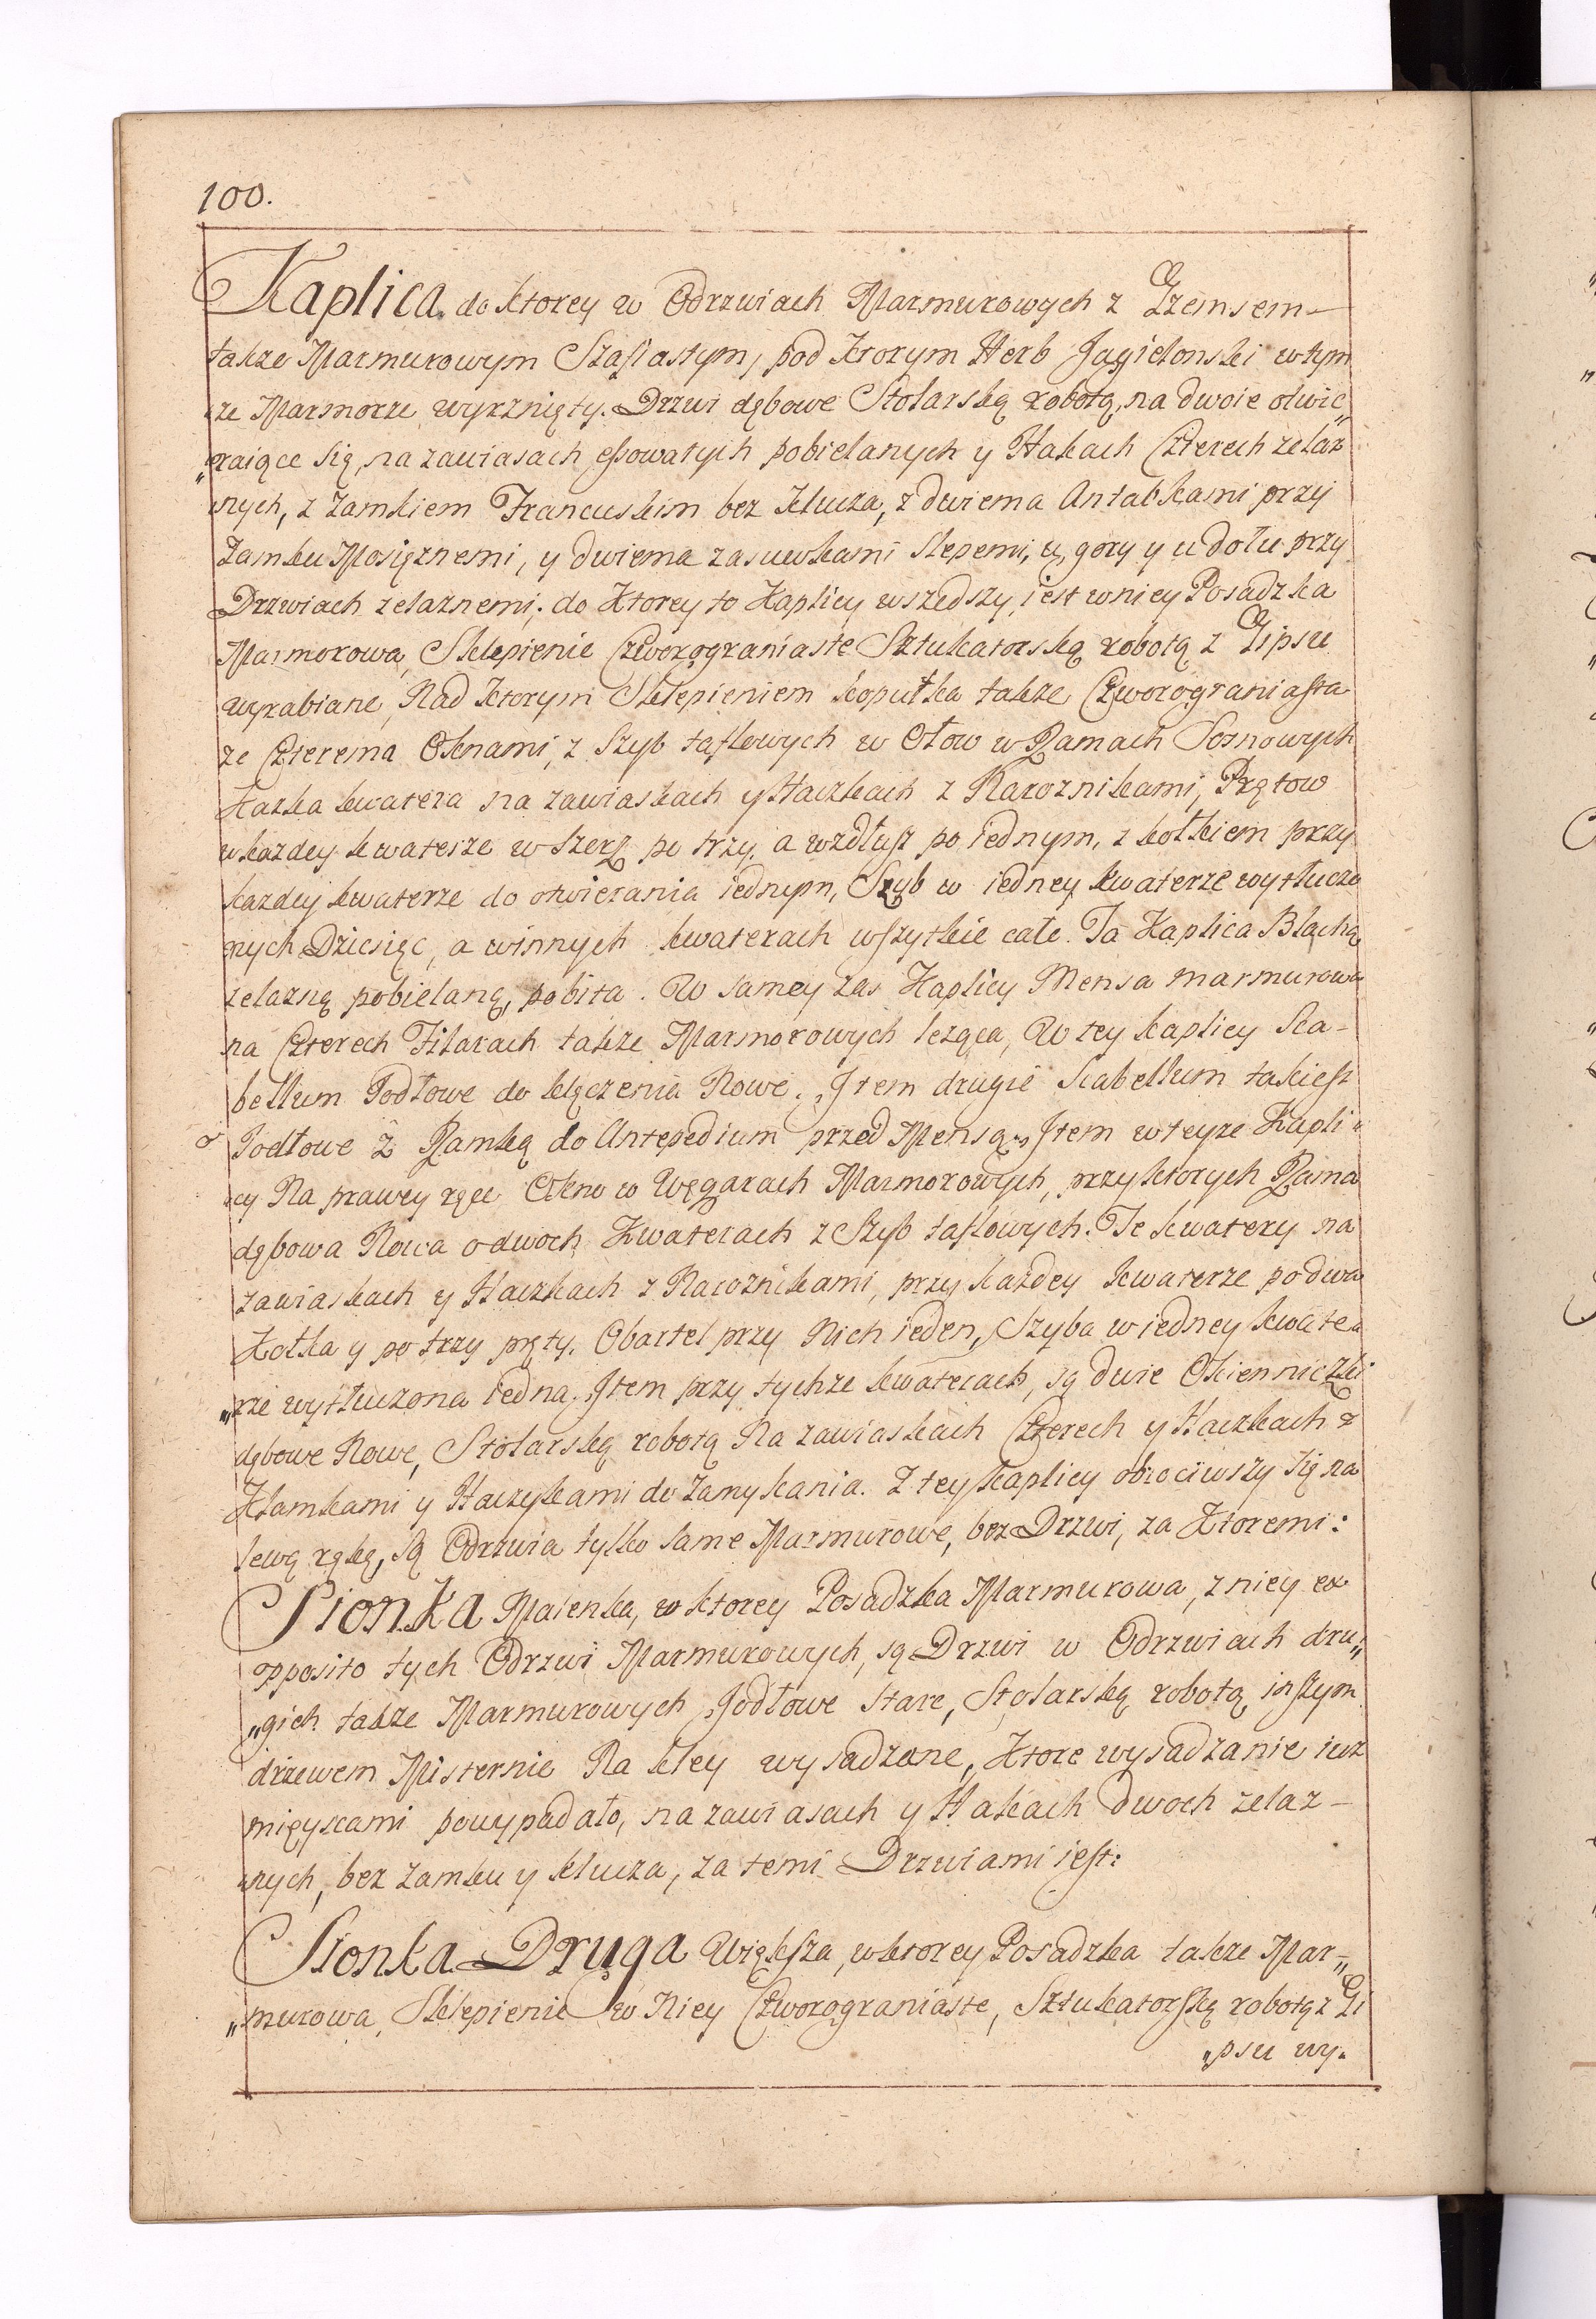 100.
Kaplica do ktorey w Odrzwiach Marmurowych z Gzemsem
takze Marmurowym Szasiastym, pod ktorym Herb Jagielonski w tym
ze Marmorze wyrznięty. Drzwi dębowe Stolarską robotą, na dwoie otwie„
„raiące się, na zawiasach essowatych pobielanych y Hakach Czterech zelaz
nych, z Zamkiem Francuskim bez Klucza, z dwiema Antabkami przy
Zamku Mosięznemi, y dwiema zasuwkami slepemi, u gory y u dołu przy
Drzwiach zelaznemi; do Ktorey to Kaplicy wszedszy, iest w niey Posadzka
Marmorowa, Sklepienie Czworograniaste Sztukatorską robotą z Gipsu
wyrabiane, Nad ktorym Sklepieniem kopułka takze Czworograniasta
ze Czterema Oknami, z Szyb taflowych w Ołow w Ramach Sosnowych
Kazka kwatera na zawiaskach y Haczkach z Naroznikami, Prętow
w kazdey kwaterze w szerz po trzy, a wzdłusz po iednym, z kołkiem przy
kazdey kwaterze do otwierania iednym, Szyb w iedney kwaterze wytłuczo
nych Dziesięc, a w innych kwaterach wszytkie całe. Ta Kaplica Blachą
zelazną pobielaną, pobita. W samey zas Kaplicy Mensa marmurowa
na Czterech Filarach takze Marmorowych leząca, W tey kaplicy Sca-
bellum Jodłowe do klęczenia Nowe. Jtem drugie Scabellum takiesz
Jodłowe z Ramką do Antepedium przed Mensą. Jtem w teyze Kapli„
cy Na prawey ręce Okno w Węgarach Marmorowych, przy ktorych Rama
dębowa Nowa o dwoch Kwaterach z Szyb taflowych. Te kwatery na
zawiaskach y Haczkach z Naroznikami, przy kazdey kwaterze po dwa
Kołka y po trzy pręty. Obartel przy Nich ieden, Szyba w iedney kwate„
„rze wytłuczona iedna. Jtem przy tychze kwaterach, są dwie Okienniczki
dębowe Nowe, Stolarską robotą Na zawiaskach Czterech y Haczkach z
Klamkami y Haczykami do Zamykania. Z tey kaplicy obrociwszy się na
lewą rękę, są Odrzwia tylko same Marmurowe, bez Drzwi, za Ktoremi:
Sionka Malenka, w ktorey Posadzka Marmurowa, z niey ex
opposito tych Odrzwi Marmurowych, są Drzwi w Odrzwiach dru„
„gich takze Marmurowych Jodłowe stare, Stolarską robotą inszym
drzewem Misternie Na kley wysadzane, Ktore wysadzanie iuz
mieyscami powypadało, na zawiasach y Hakach dwoch zelaz-
nych, bez Zamku y klucza, za temi Drzwiami iest:
Sionka Druga Większa, w ktorey Posadzka takze Mar„
„murowa, Sklepienie w Niey Czworograniaste, Sztukatorską robotą z Gi
„psu wy„